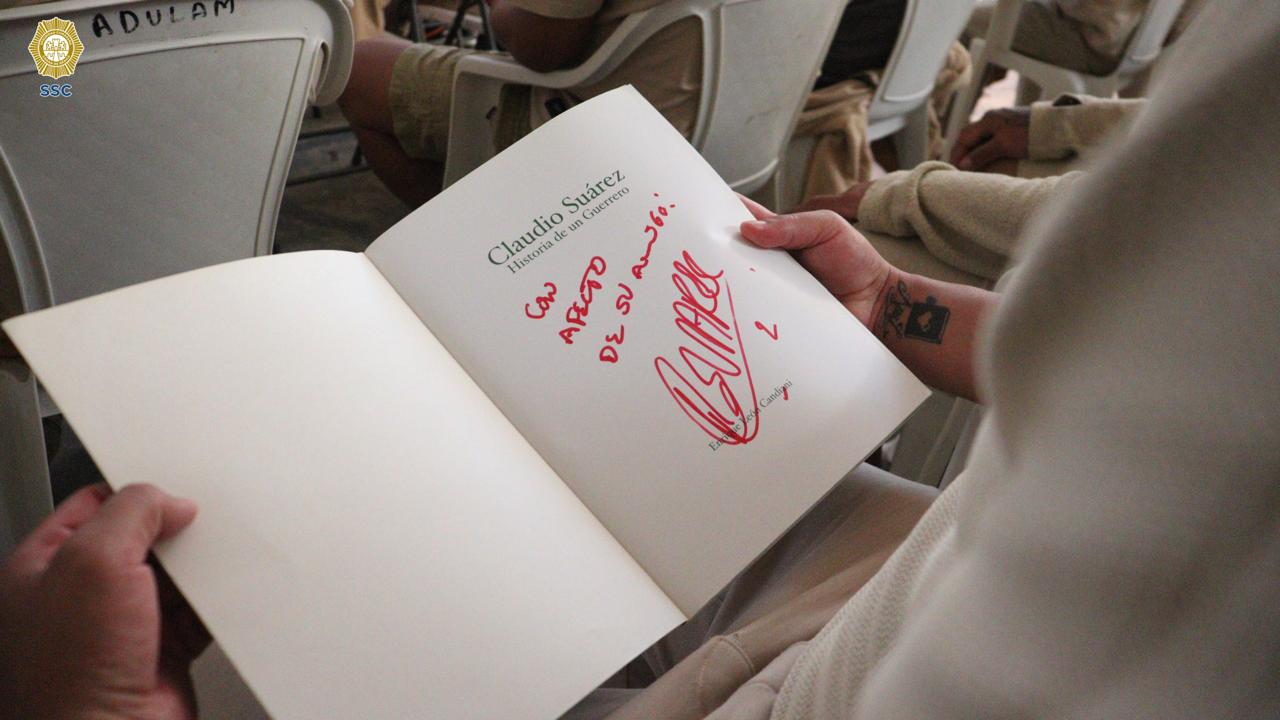 ADULAM
SSC
Claudio Suárez
Historia de un Guerrero
CON
AFECTO
DE SU AMIGO:
SUAREZ
2
Enrique León Candiani